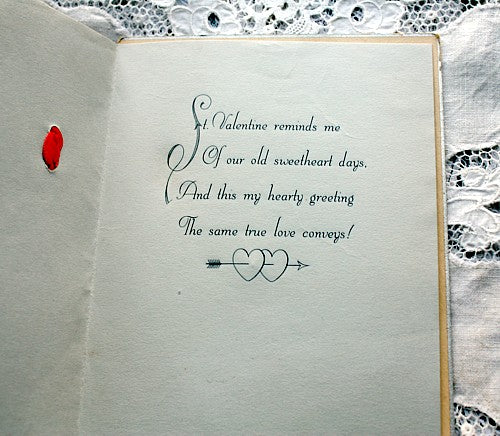 St. Valentine reminds me
Of our old sweetheart days,
And this my hearty greeting
The same true love conveys!